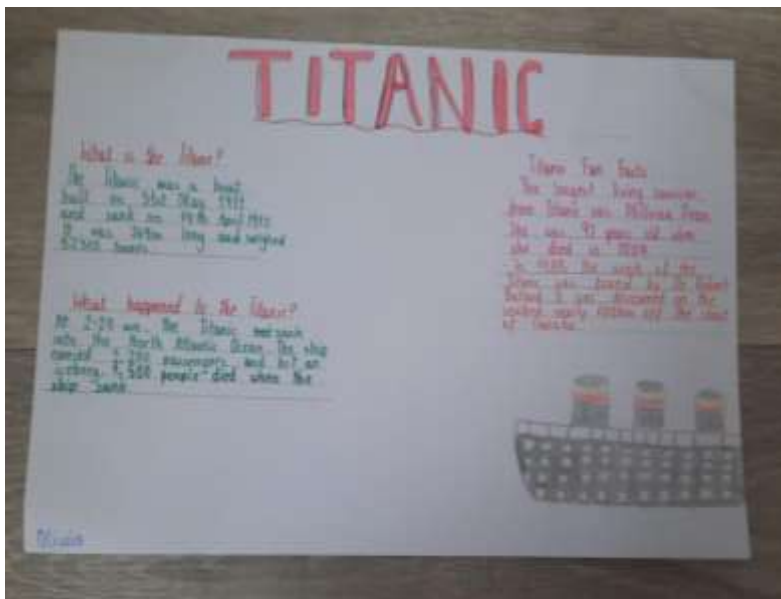 TITANIC
What is the Titanic?
The Titanic was a boat
built on 31st May 1911
and sank on 14th April 1912
It was 269m long and weighed
52310 tonnes
What happened to the Titanic?
At 2:20 am, the Titanic sank
into the North Atlantic Ocean. The ship
carried passengers and hit an
iceberg. 1,500 people died when the
ship sank
Titanic Fun Facts
The longest living survivor
from Titanic was Millvina Dean
She was 97 years old when
she died in 2009
In 1985 the wreck of the
Titanic was found by Dr Robert
Ballard. It was discovered on the
seabed nearly off the coast
of Canada.
Olivia